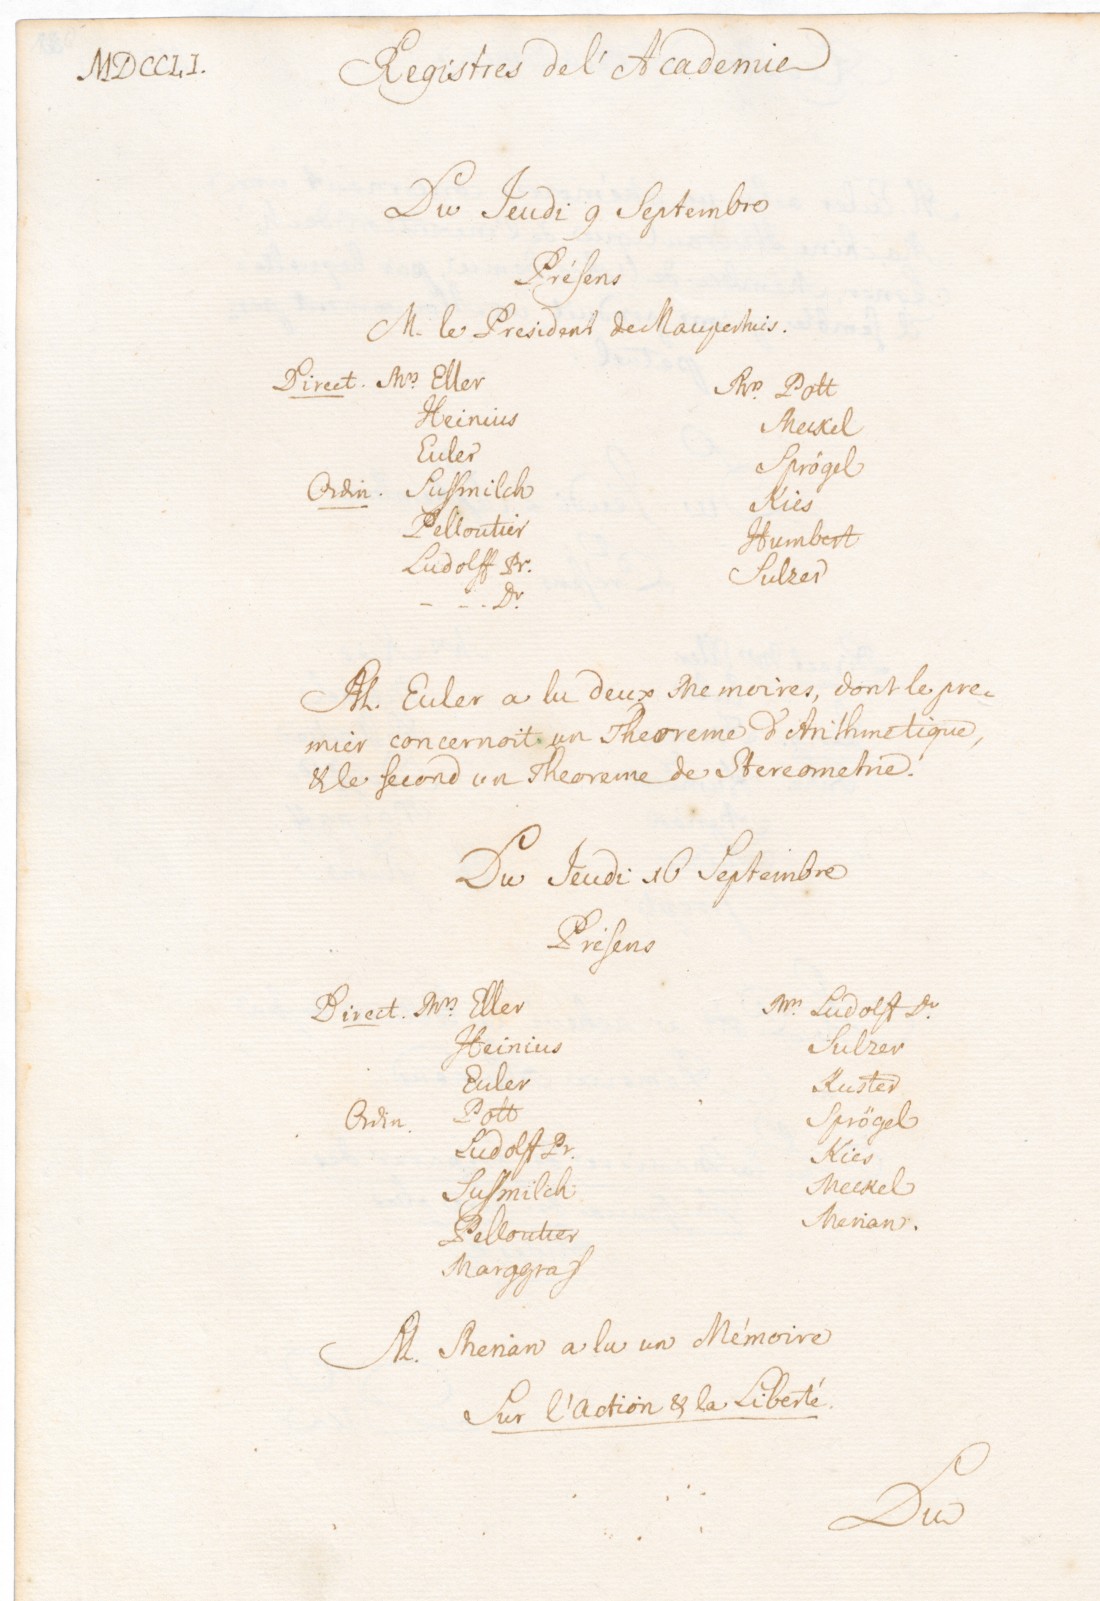 MDCCLI.
Registres de l'Academie
Du Jeudi 9 Septembre
Présens
M. le President de Maupertuis.
Direct. Mrs Eller
Heinius
Euler
Ordin. Sussmilch
Pelloutier
Ludolff Pr.
- - - Dr.
Mrs. Pott
Meckel
Sprögel
Kies
Humbert
Sulzer
M. Euler a lu deux Memoires, dont le pre-
mier concernoit un Theoreme d'Arithmetique,
& le second un Theoreme de Stereometrie.
Du Jeudi 16 Septembre
Présens
Direct. Mrs Eller
Heinius
Euler
Ordin. Pott
Ludolff Pr.
Sussmilch
Pelloutier
Marggraf
Mrs. Ludolff Dr.
Sulzer
Kuster
Sprögel
Kies
Meckel
Merian.
M. Merian a lu un Mémoire
Sur l'Action & la Liberté.
Du